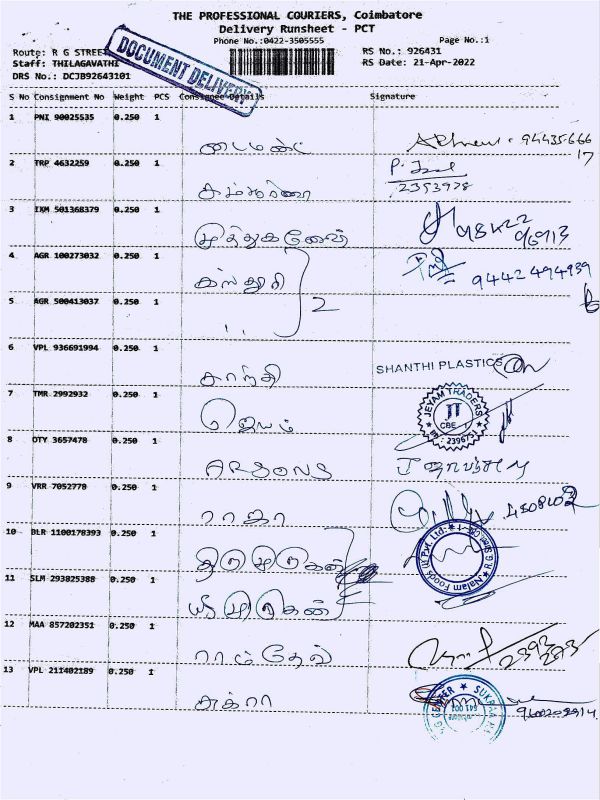 THE PROFESSIONAL COURIERS, Coimbatore
Delivery Runsheet - PCT
Phone No.:0422-3505555
Page No.:1
Route: R G STREET
RS No.: 926431
Staff: THILAGAVATHI
RS Date: 21-Apr-2022
DRS No.: DCJB92643101
DOCUMENT DELIVERY
S No Consignment No Weight PCS Consignee Details Signature
1 PNI 90025535 0.250 1
94435666
17
2 TRP 4632259 0.250 1
2393978
3 IXM 501368379 0.250 1 முத்துகணேஷ்
4 AGR 100273032 0.250 1 கஸ்தூரி
9442494939
5 AGR 500413037 0.250 1 ,, 2
6 VPL 936691994 0.250 1 காந்தி SHANTHI PLASTICS
7 TMR 2992932 0.250 1 ஜெயம் JEYAM TRADERS JT CBE - 1
8 OTY 3657478 0.250 1 ARSONS
9 VRR 7052778 0.250 1 ராஜா
10 BLR 1100178393 0.250 1 திருமுருகன்
Nalam Foods (I) Pvt. Ltd.
11 SLM 293825388 0.250 1 ஸ்ரீமுருகன்
12 MAA 857202351 0.250 1 ராம்தேவ்
13 VPL 211402189 0.250 1 சுக்ரா